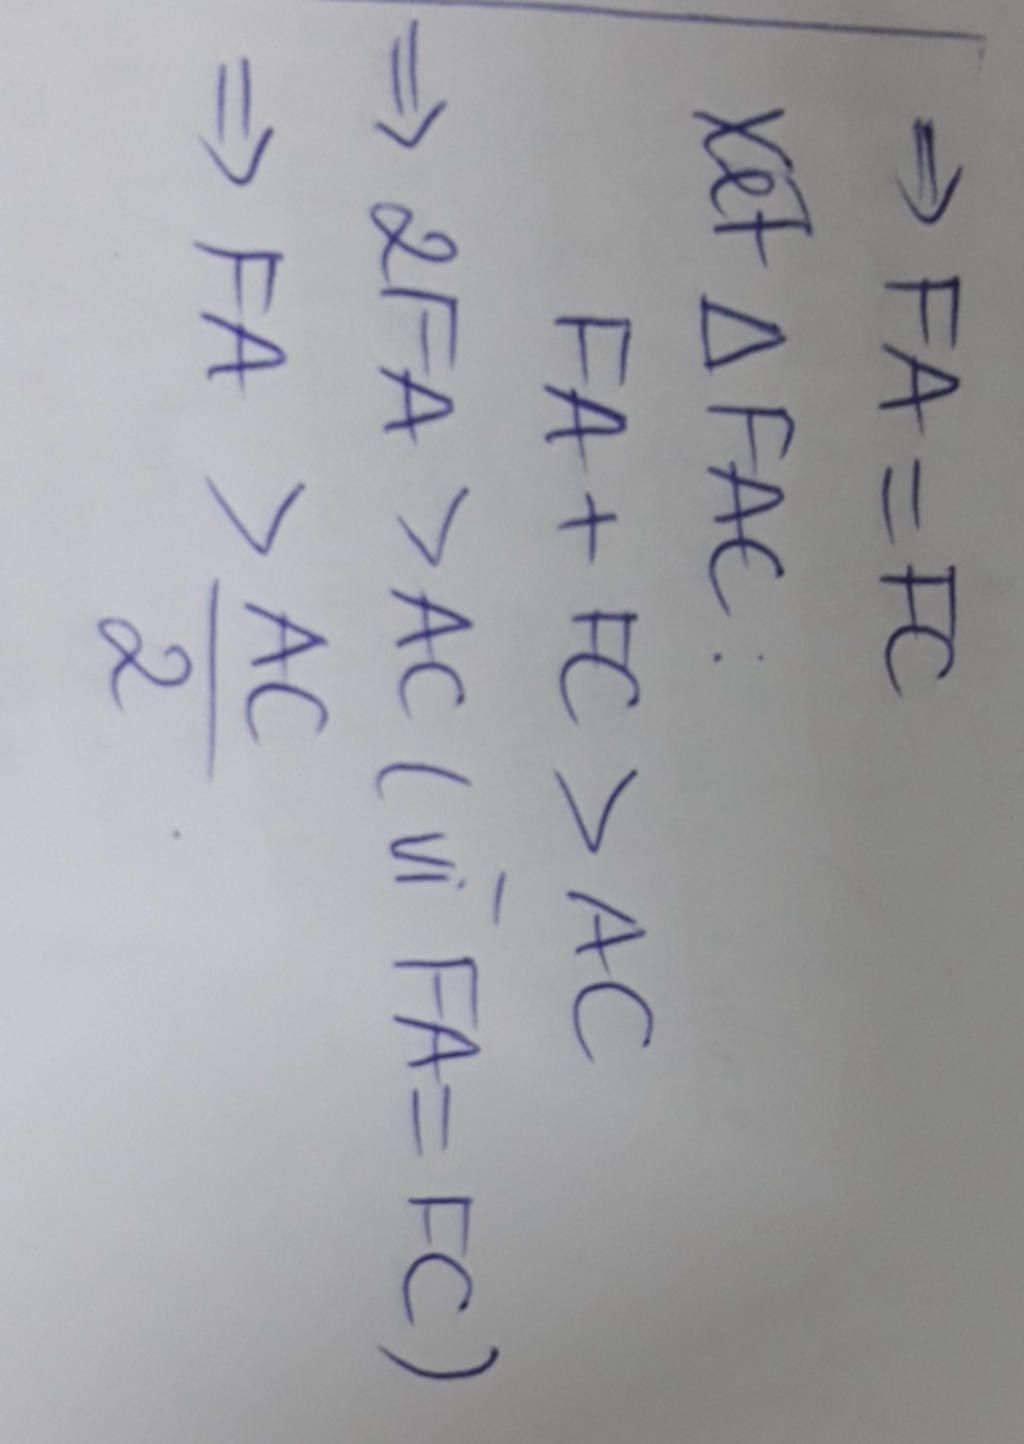 ⇒ FA = FC
Xét Δ FAC :
FA + FC > AC
⇒ 2FA > AC ( vì FA = FC )
⇒ FA > AC/2 .